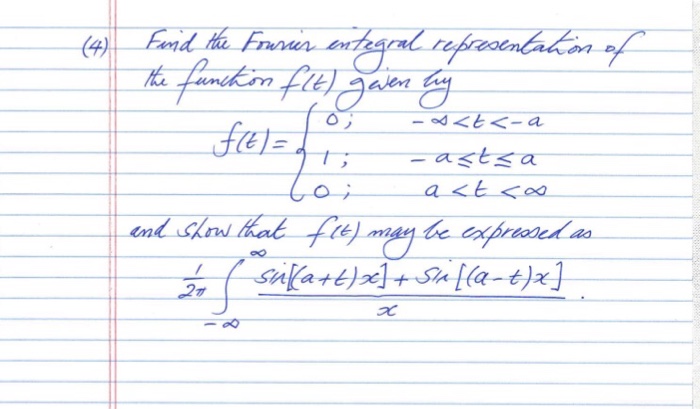 (4) Find the Fourier integral representation of
the function f(t) given by
f(t) = { 0 ; -∞ < t < -a
1 ; -a ≤ t ≤ a
0 ; a < t < ∞
and show that f(t) may be expressed as
1/2π ∫_{-∞}^{∞} sin[(a+t)x] + sin[(a-t)x] / x .